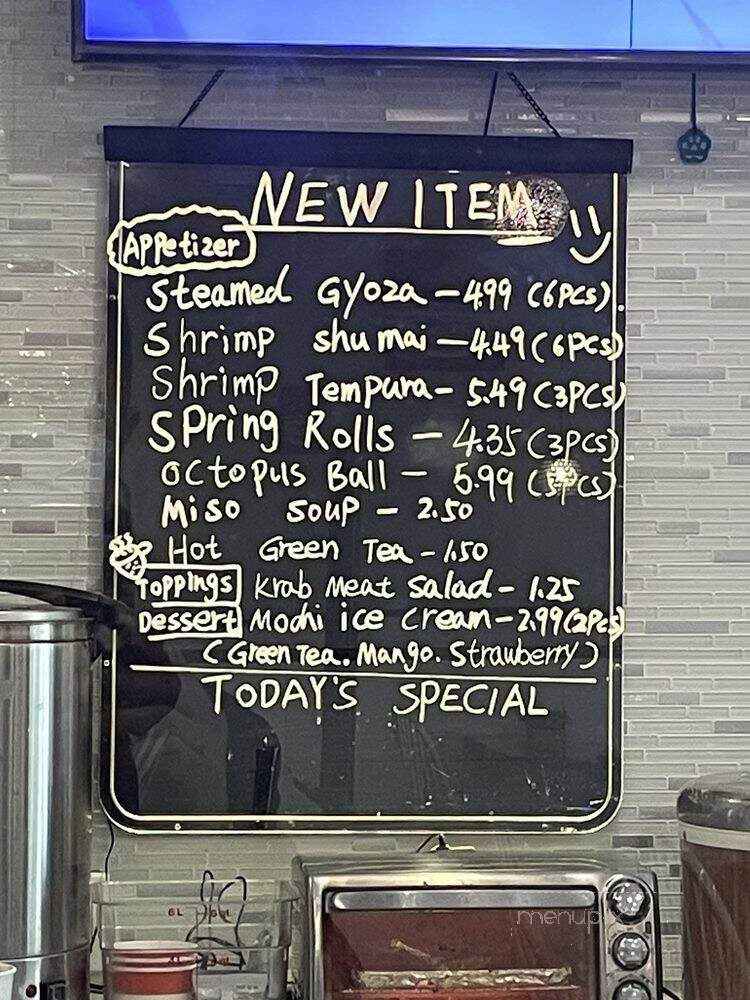 NEW ITEM
Appetizer
Steamed Gyoza - 4.99 (6Pcs).
Shrimp shumai - 4.49 (6Pcs)
Shrimp Tempura - 5.49 (3PCS)
Spring Rolls - 4.35 (3PCS)
octopus Ball - 5.99
Miso soup - 2.50
Hot Green Tea - 1.50
Toppings Krab Meat salad - 1.25
Dessert Mochi ice cream - 2.99 (2Pcs)
(Green Tea. Mango. Strawberry)
TODAY'S SPECIAL
6L